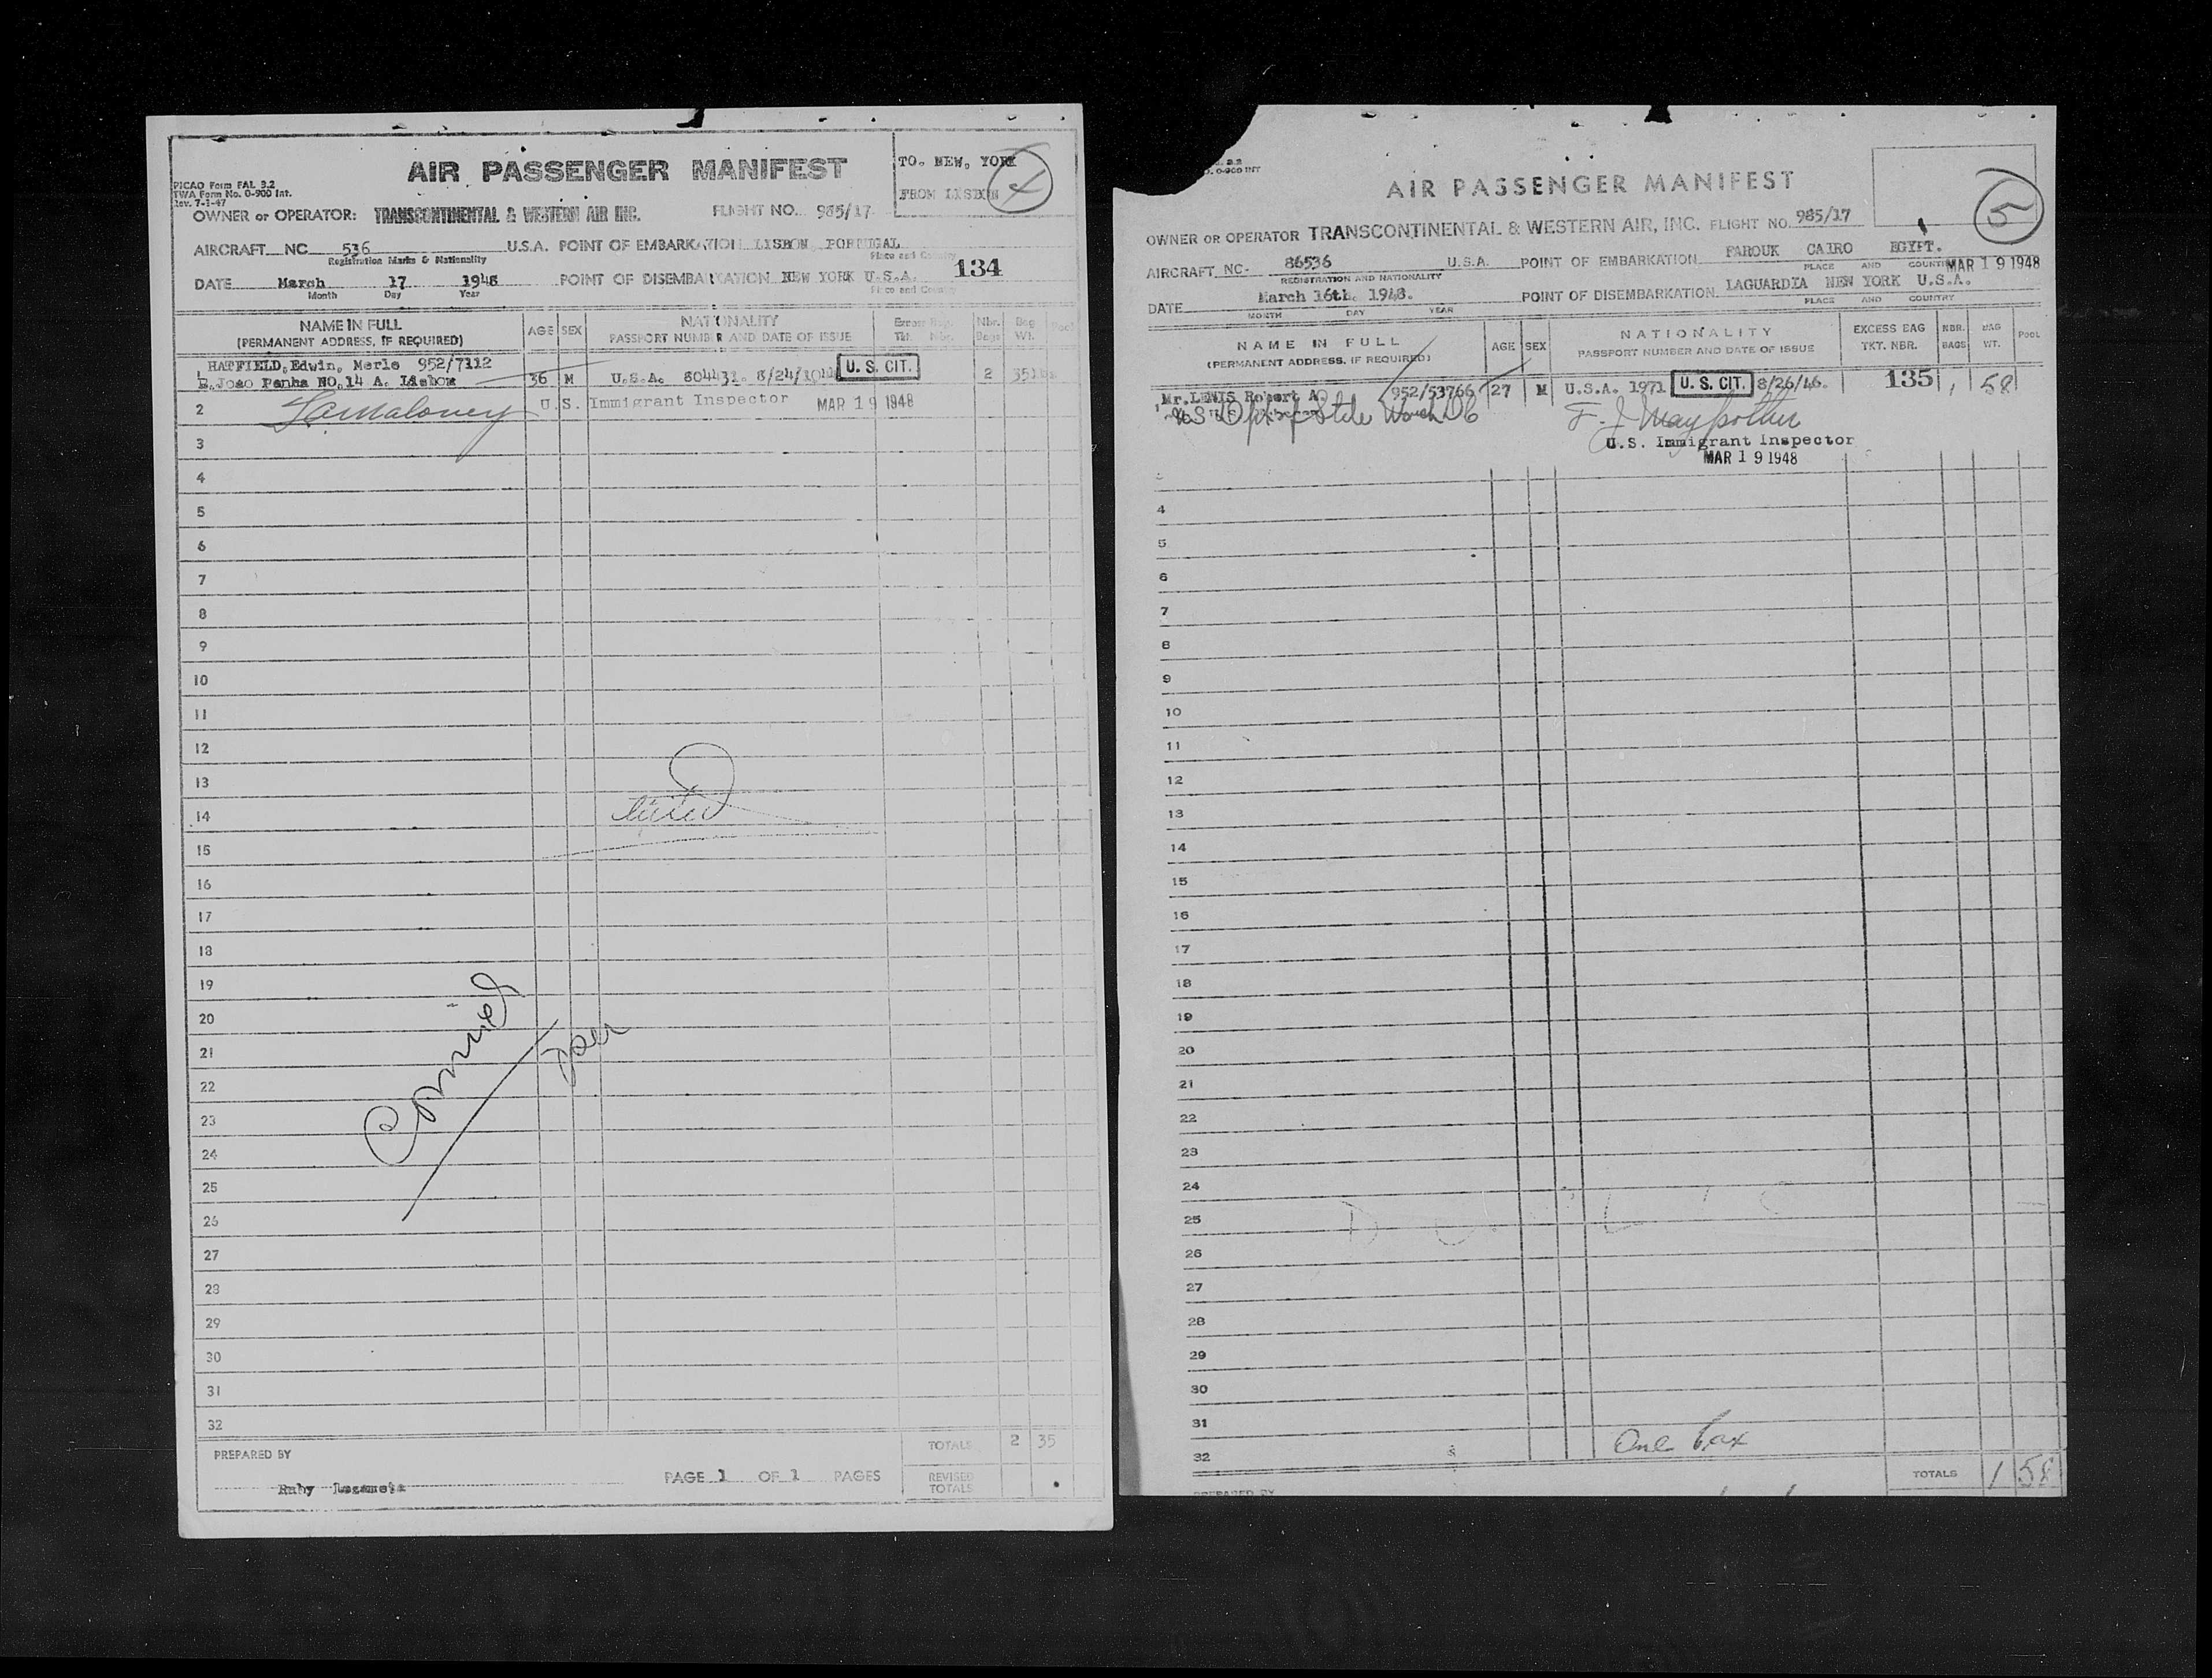 AIR PASSENGER MANIFEST
TO. NEW, YORK
FROM LISBON
4
PICAO Form FAL 3.2
TWA Form No. O-900 Int.
Rev. 7-1-47
OWNER or OPERATOR: TRANSCONTINENTAL & WESTERN AIR INC. FLIGHT NO. 985/17
AIRCRAFT NC 536 U.S.A. POINT OF EMBARKATION LISBON PORTUGAL
Registration Marks & Nationality Place and Country
DATE March 17 1948 POINT OF DISEMBARKATION NEW YORK U.S.A. 134
Month Day Year Place and Country
NAME IN FULL AGE SEX NATIONALITY Excess Bag. Nbr. Bag Pool
(PERMANENT ADDRESS, IF REQUIRED) PASSPORT NUMBER AND DATE OF ISSUE Tkt. Nbr. Bags Wt.
1 HATFIELD, Edwin, Merle 952/7112
R.Joao Penha NO.14 A. Lisbon 36 M U.S.A. 804431. 8/24/1944 U. S. CIT. 2 35
2 U.S. Immigrant Inspector MAR 19 1948
3
4
5
6
7
8
9
10
11
12
13
14
15
16
17
18
19
20
21
22
23
24
25
26
27
28
29
30
31
32
PREPARED BY TOTALS 2 35
Ruby PAGE 1 OF 1 PAGES REVISED TOTALS
O-900 INT
AIR PASSENGER MANIFEST
5
OWNER OR OPERATOR TRANSCONTINENTAL & WESTERN AIR, INC. FLIGHT NO. 985/17
AIRCRAFT NC- 86536 U.S.A. POINT OF EMBARKATION FAROUK CAIRO EGYPT.
REGISTRATION AND NATIONALITY PLACE AND COUNTRY MAR 19 1948
DATE March 16th. 1948. POINT OF DISEMBARKATION LAGUARDIA NEW YORK U.S.A.
MONTH DAY YEAR PLACE AND COUNTRY
NAME IN FULL AGE SEX NATIONALITY EXCESS BAG NBR. BAG POOL
(PERMANENT ADDRESS, IF REQUIRED) PASSPORT NUMBER AND DATE OF ISSUE TKT. NBR. BAGS WT.
1 Mr.LEWIS Robert A 952/53766 27 M U.S.A. 1971 U. S. CIT. 8/26/46. 135 1 58
U.S. Immigrant Inspector
MAR 19 1948
4
5
6
7
8
9
10
11
12
13
14
15
16
17
18
19
20
21
22
23
24
25
26
27
28
29
30
31
32
One box
TOTALS 1 58
PREPARED BY